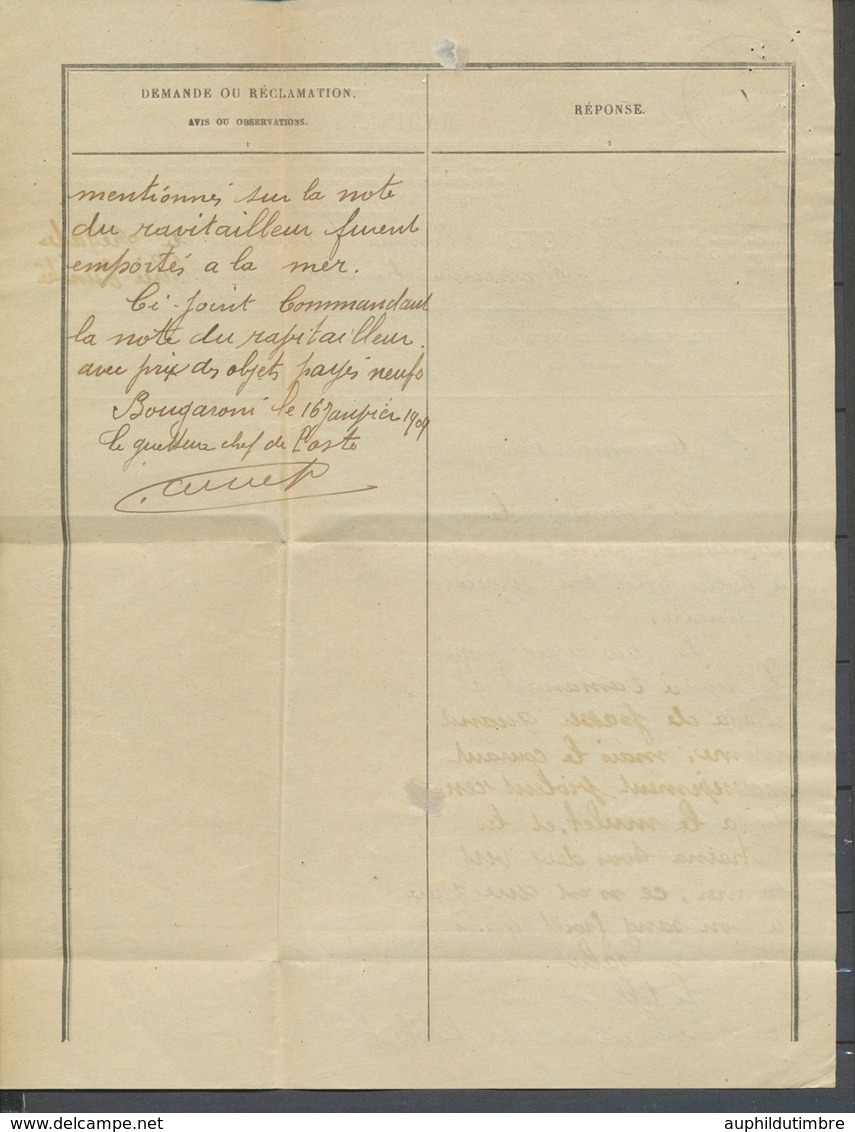 DEMANDE OU RÉCLAMATION.
AVIS OU OBSERVATIONS.
1
RÉPONSE.
2
mentionnés sur la note
du ravitailleur furent
emportés a la mer.
Ci-Joint Commandant
la note du ravitailleur.
avec prix des objets payés neufs
Bougaroni le 16 Janvier 1909
le guetteur chef de Poste
auphildutimbre.com